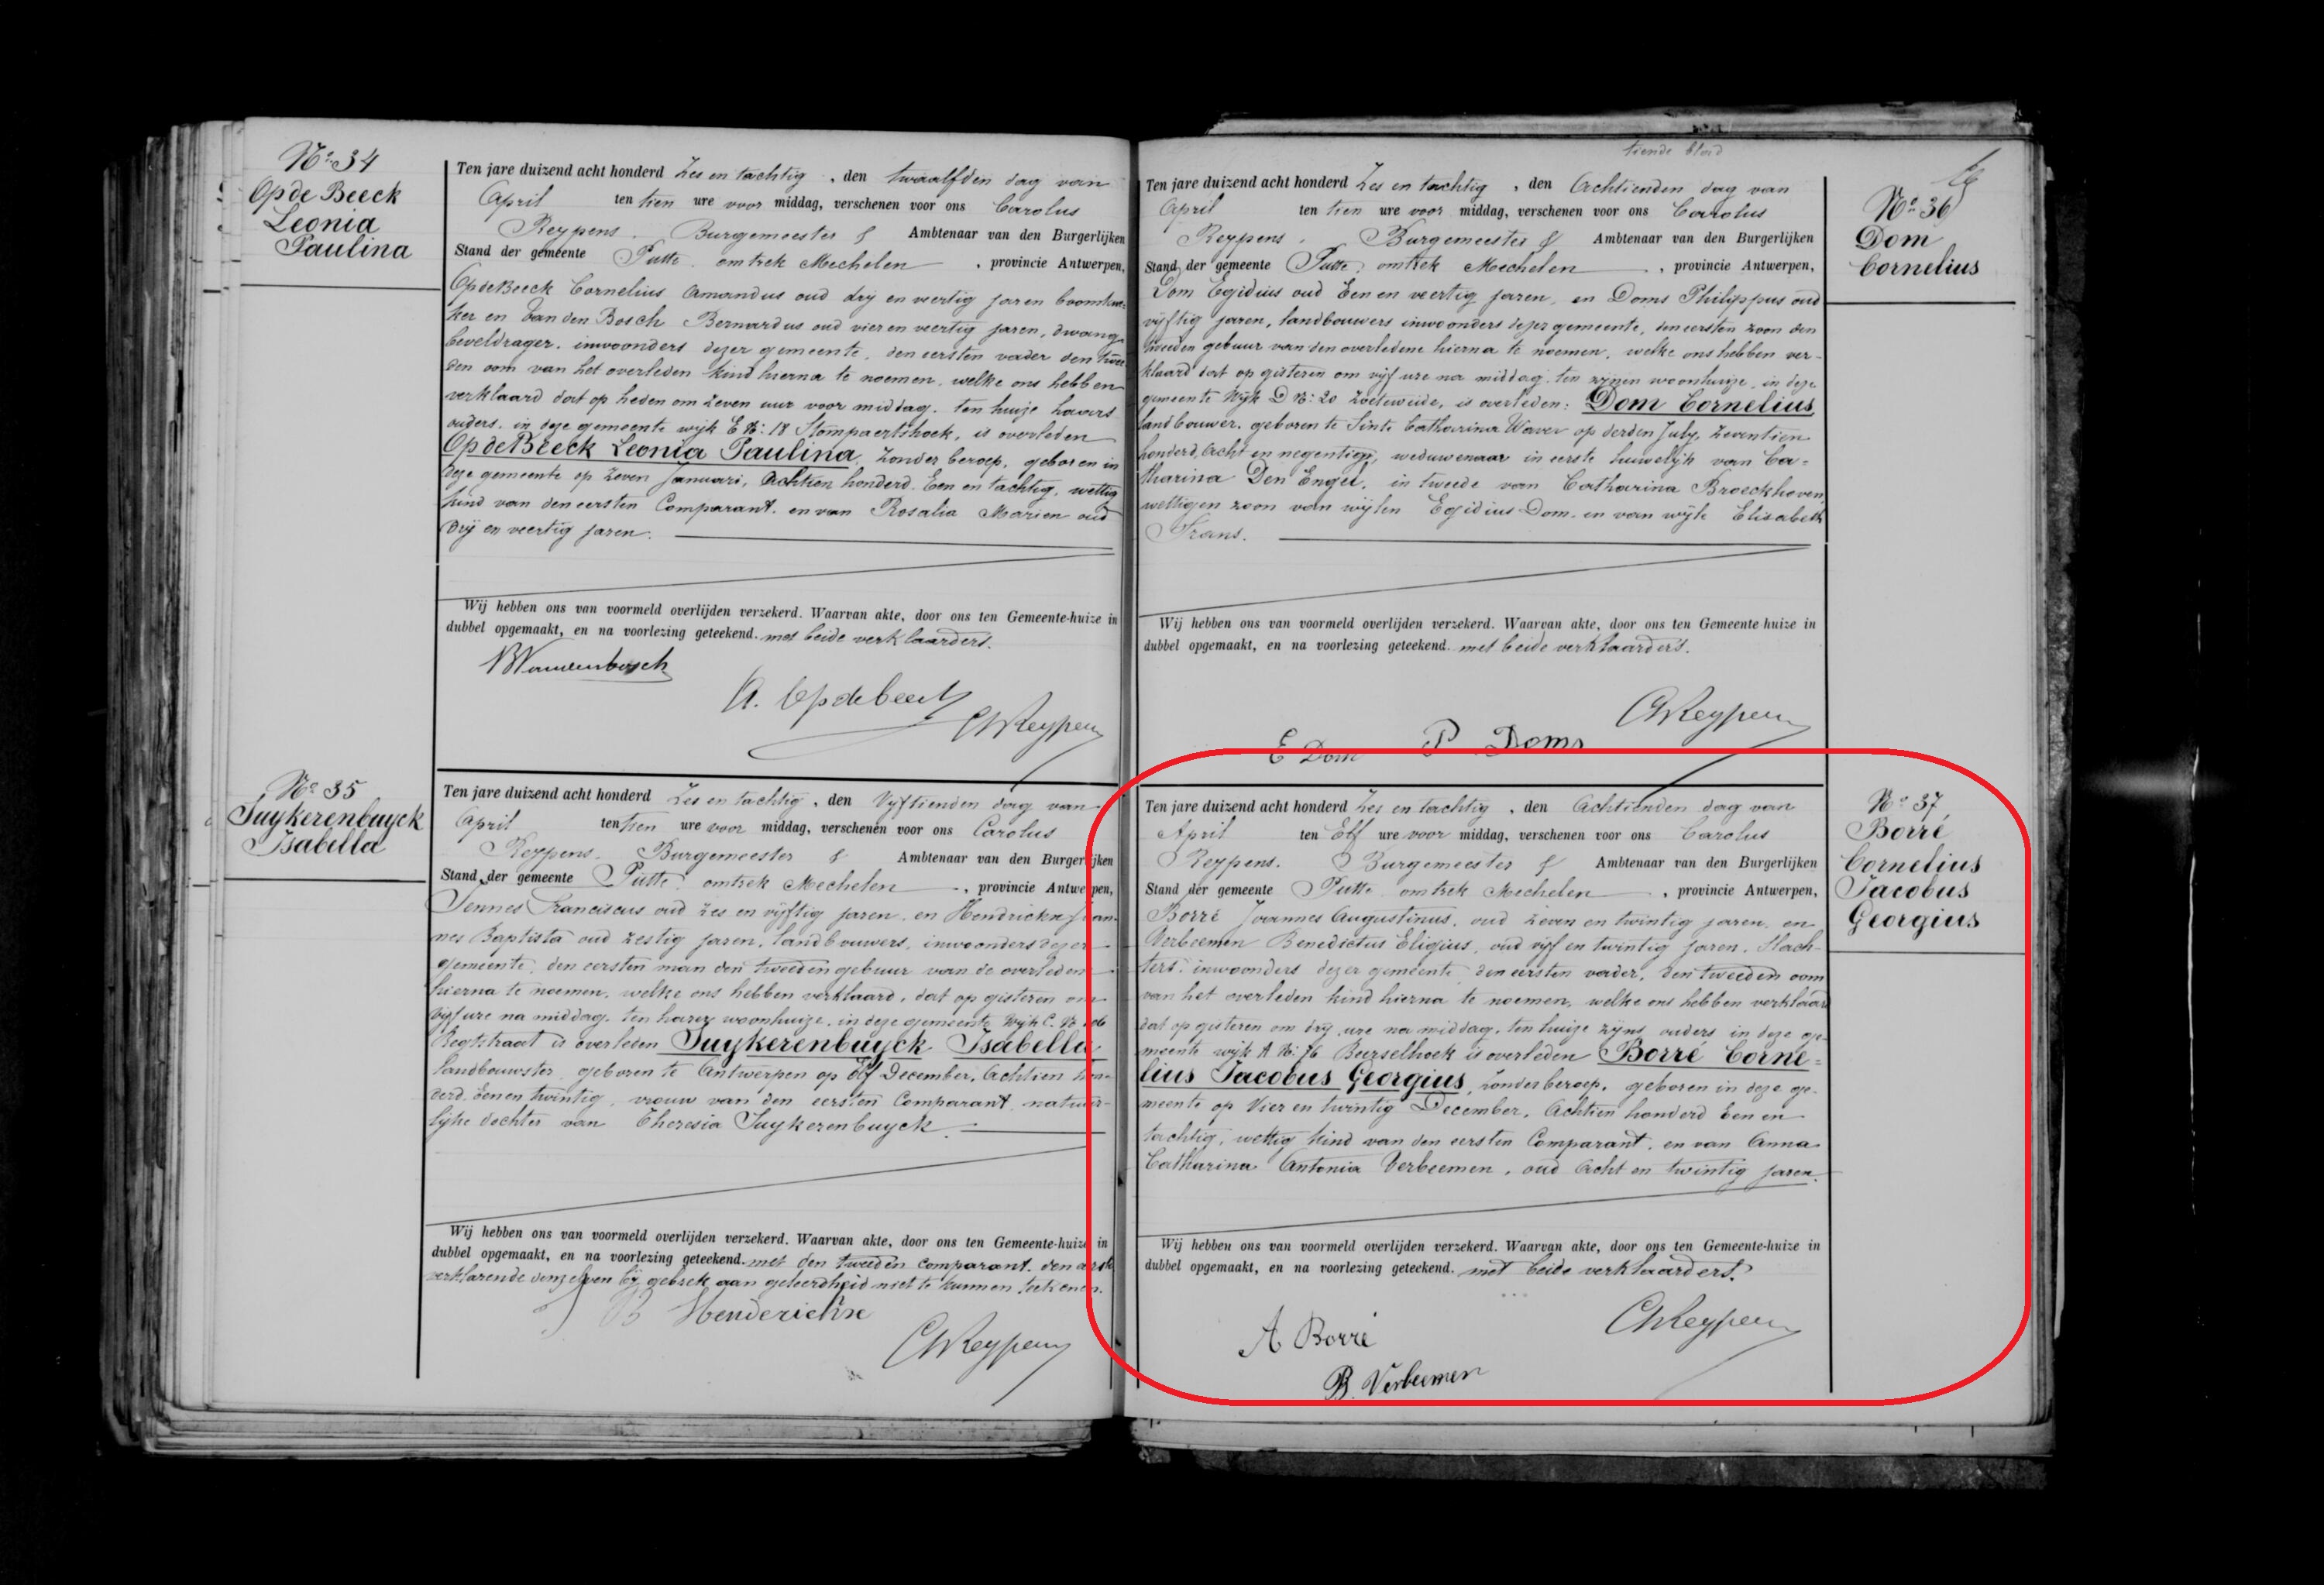 Nº 34
Op de Beeck
Leonia
Paulina
Ten jare duizend acht honderd Zes en tachtig, den twaalfden dag van
April ten tien ure voor middag, verschenen voor ons Carolus
Reypens. Burgemeester & Ambtenaar van den Burgerlijken
Stand der gemeente Putte omtrek Mechelen, provincie Antwerpen,
Op de Beeck Cornelius Amandus oud drij en veertig jaren
ker en Van den Bosch Bernardus oud vier en veertig jaren, dwang
beveldrager. inwoonders dezer gemeente, den eersten vader den twee
den oom van het overleden kind hierna te noemen, welke ons hebben
verklaard dat op heden om zeven uur voor middag. ten huize haars
ouders. in deze gemeente wijk E Nº: 18 Stompaertshoek, is overleden
Op de Beeck Leonia Paulina, zonder beroep, geboren in
deze gemeente op zeven Januari, Achtien honderd Een en tachtig, wettig
kind van den eersten Comparant. en van Rosalia Marien oud
drij en veertig jaren.
Wij hebben ons van voormeld overlijden verzekerd. Waarvan akte, door ons ten Gemeente-huize in
dubbel opgemaakt, en na voorlezing geteekend. met beide verklaarders.
BVandenbosch
A. Opdebeeck
CReypens
Nº 35
Suykerenbuyck
Isabella
Ten jare duizend acht honderd Zes en tachtig, den Vijftienden dag van
April ten tien ure voor middag, verschenen voor ons Carolus
Reypens. Burgemeester & Ambtenaar van den Burgerlijken
Stand der gemeente Putte omtrek Mechelen, provincie Antwerpen,
Franciscus oud zes en vijftig jaren, en Hendrickx Joan-
nes Baptista oud zestig jaren, landbouwers, inwoonders dezer
gemeente, den eersten man den tweeden gebuur van de overleden
hierna te noemen, welke ons hebben verklaard, dat op gisteren om
vijf ure na middag. ten harer woonhuize. in deze gemeente Wijk C. Nº 106
is overleden Suykerenbuyck Isabella
landbouwster geboren te Antwerpen op Elf December, Achtien hon-
derd Een en twintig, vrouw van den eersten Comparant, natuur-
lijke dochter van Theresia Suykerenbuyck.
Wij hebben ons van voormeld overlijden verzekerd. Waarvan akte, door ons ten Gemeente-huize in
dubbel opgemaakt, en na voorlezing geteekend. met den tweeden comparant. den eerste
verklarende bij gebrek aan geleerdheid niet te kunnen teekenen.
B Henderickx
CReypens
tiende blad
Nº 36
Dom
Cornelius
Ten jare duizend acht honderd Zes en tachtig, den Achtienden dag van
April ten tien ure voor middag, verschenen voor ons Carolus
Reypens. Burgemeester & Ambtenaar van den Burgerlijken
Stand der gemeente Putte omtrek Mechelen, provincie Antwerpen,
Dom Egidius oud Een en veertig jaren, en Doms Philippus oud
vijftig jaren, landbouwers inwoonders dezer gemeente, den eersten zoon den
tweeden gebuur van den overledene hierna te noemen, welke ons hebben ver-
klaard dat op gisteren om vijf ure na middag. ten zijnen woonhuize, in deze
gemeente Wijk D Nº: 20 Zoeteweide, is overleden: Dom Cornelius
landbouwer, geboren te Sinte Catharina Waver op derden July, zeventien
honderd Acht en negentig, weduwenaar in eerste huwelijk van Ca-
tharina Den Engel, in tweede van Catharina Broeckhoven,
wettigen zoon van wijlen Egidius Dom. en van wijle Elisabeth
Frans.
Wij hebben ons van voormeld overlijden verzekerd. Waarvan akte, door ons ten Gemeente-huize in
dubbel opgemaakt, en na voorlezing geteekend. met beide verklaarders.
CReypens
E Dom P. Doms
Nº 37
Borré
Cornelius
Jacobus
Georgius
Ten jare duizend acht honderd Zes en tachtig, den Achtienden dag van
April ten Elf ure voor middag, verschenen voor ons Carolus
Reypens. Burgemeester & Ambtenaar van den Burgerlijken
Stand der gemeente Putte omtrek Mechelen, provincie Antwerpen,
Borré Joannes Augustinus, oud zeven en twintig jaren, en
Verbeemen Benedictus Eligius, oud vijf en twintig jaren, Slach-
ters. inwoonders dezer gemeente den eersten vader, den tweeden oom
van het overleden kind hierna te noemen, welke ons hebben verklaard
dat op gisteren om drij ure na middag, ten huize zijns ouders in deze ge-
meente wijk A Nº: 76 Burselhoek is overleden Borré Corne-
lius Jacobus Georgius, zonder beroep, geboren in deze ge-
meente op Vier en twintig December, Achtien honderd Een en
tachtig, wettig kind van den eersten Comparant, en van Anna
Catharina Antonia Verbeemen, oud Acht en twintig jaren.
Wij hebben ons van voormeld overlijden verzekerd. Waarvan akte, door ons ten Gemeente-huize in
dubbel opgemaakt, en na voorlezing geteekend. met beide verklaarders.
CReypens
A Borré
B. Verbeemen